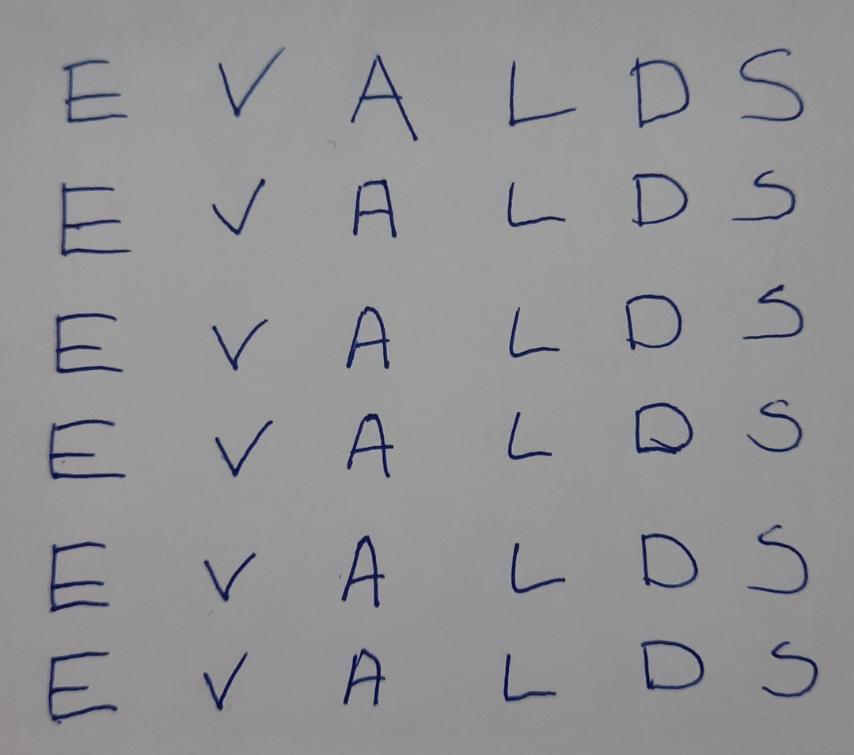 E V A L D S
E V A L D S
E V A L D S
E V A L D S
E V A L D S
E V A L D S